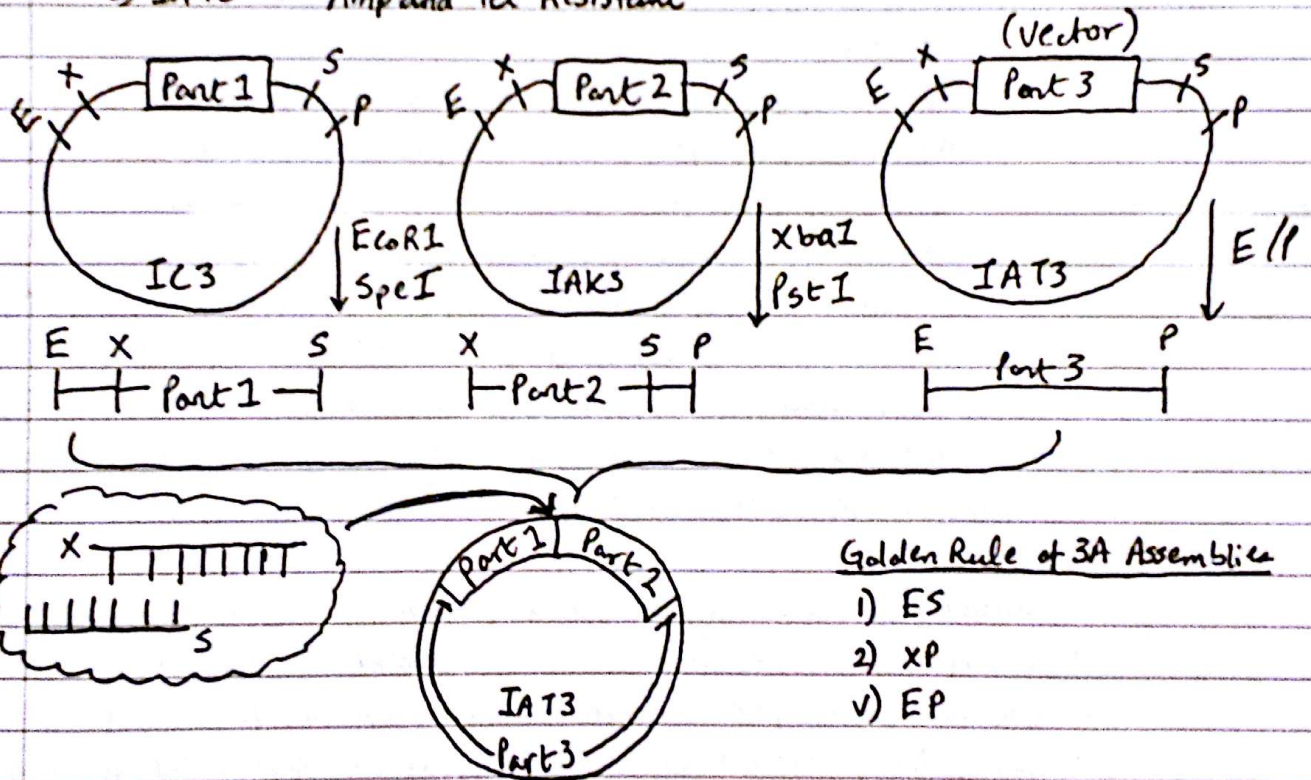 Amp and Tet Resistance
(vector)
E X Part 1 S P
E X Part 2 S P
E X Part 3 S P
IC3
EcoR1
SpeI
IAK5
XbaI
PstI
IAT3
E//P
E X S
Part 1
X S P
Part 2
E P
Part 3
X
S
Part 1 Part 2
IAT3
Part 3
Golden Rule of 3A Assemblies
1) ES
2) XP
V) EP